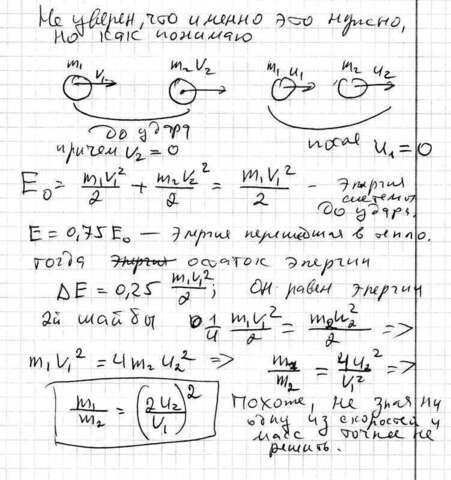 Не уверен, что именно это нужно,
но как понимаю
m₁ V₁ m₂ V₂ m₁ u₁ m₂ u₂
до удара
причем V₂ = 0
после u₁ = 0
E₀ = m₁V₁²/2 + m₂V₂²/2 = m₁V₁²/2 - Энергия
системы
до удара.
E = 0,75 E₀ — Энергия перешедшая в тепло.
тогда остаток энергии
ΔE = 0,25 m₁V₁²/2; Он равен энергии
2й шайбы 1/4 m₁V₁²/2 = m₂u₂²/2 =>
m₁V₁² = 4m₂u₂² => m₁/m₂ = 4u₂²/V₁² =>
m₁/m₂ = (2u₂/V₁)²
Похоже, не зная ни
одну из скоростей и
масс точнее не
решить.